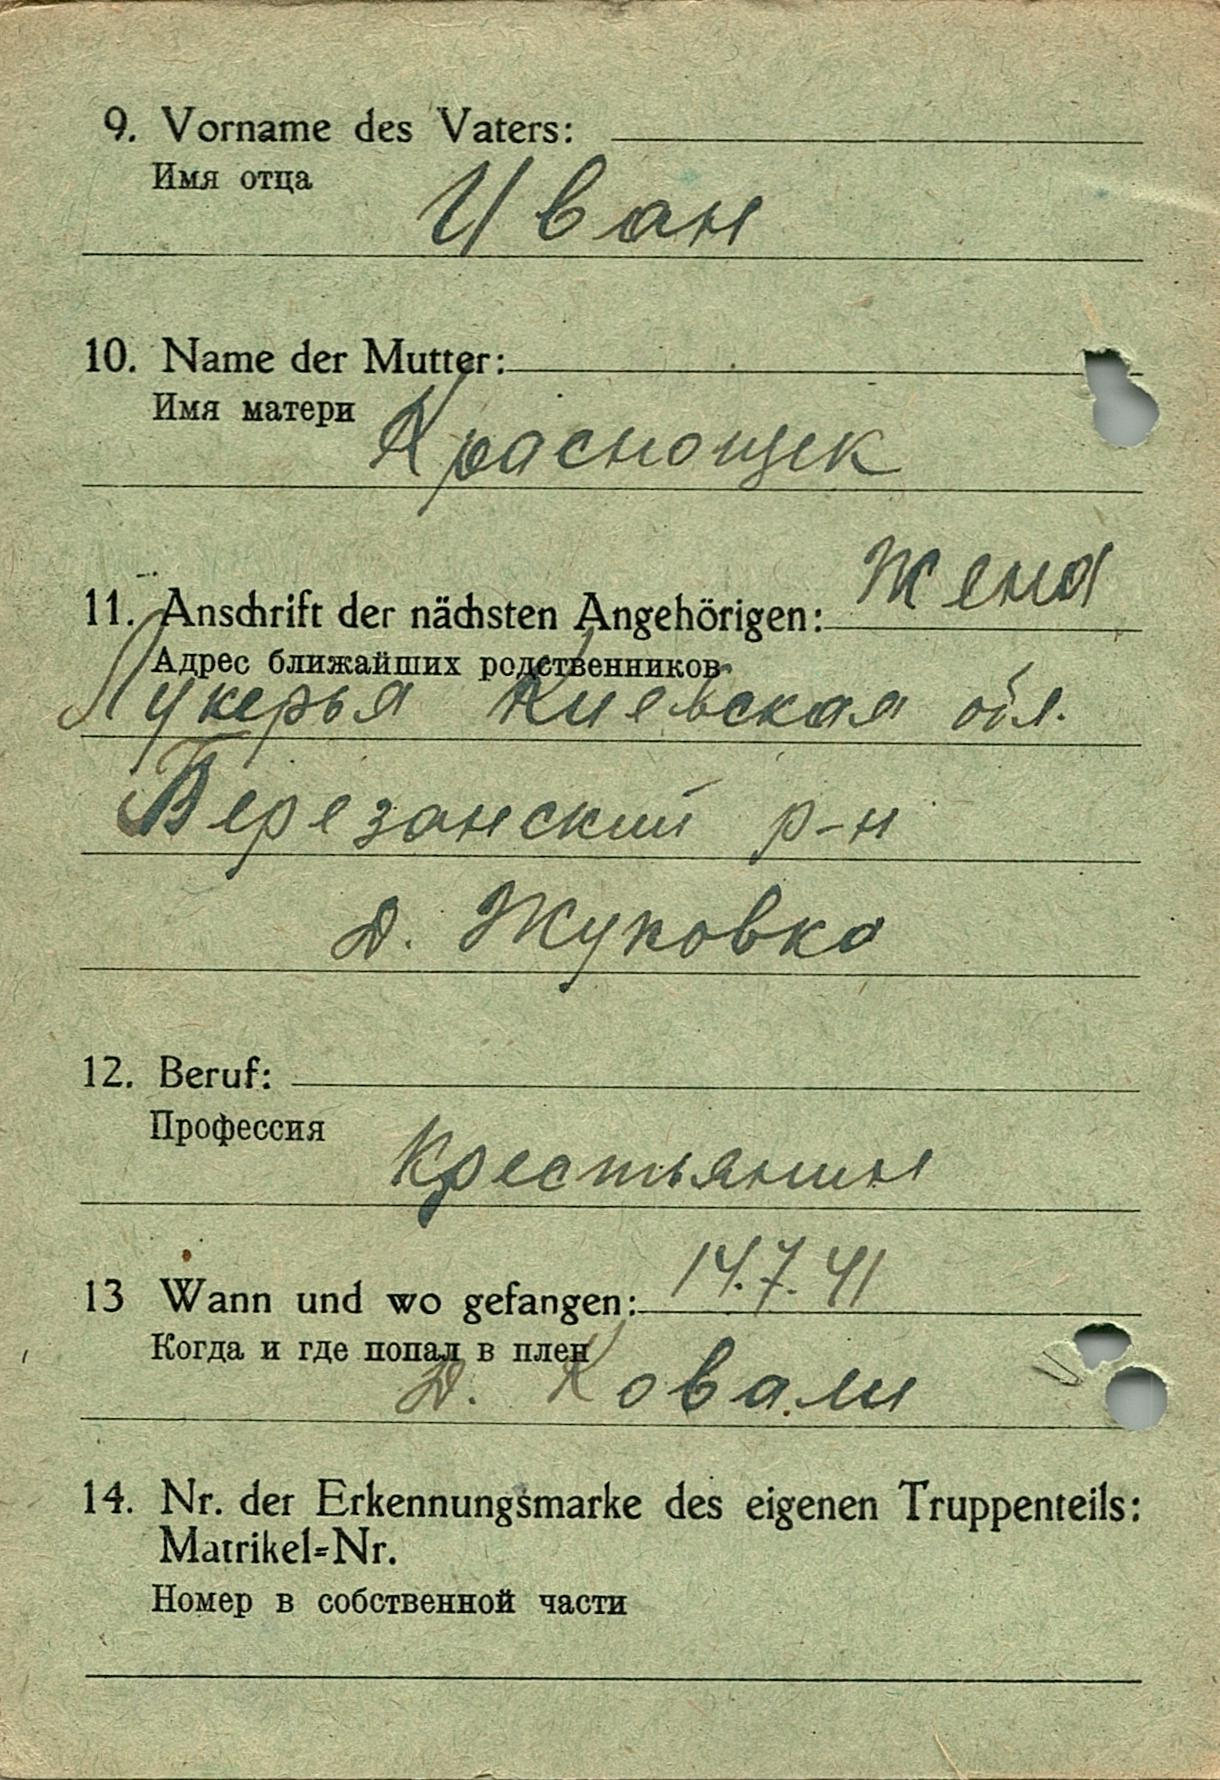 9. Vorname des Vaters:
Имя отца
Иван
10. Name der Mutter:
Имя матери
Краснощек
Жена
11. Anschrift der nächsten Angehörigen:
Адрес ближайших родственников
Лукерья Киевская обл.
Березанский р-н
д. Жуковка
12. Beruf:
Профессия
Крестьянин
13 Wann und wo gefangen: 14.7.41
Когда и где попал в плен
д. Ковали
14. Nr. der Erkennungsmarke des eigenen Truppenteils:
Matrikel=Nr.
Номер в собственной части